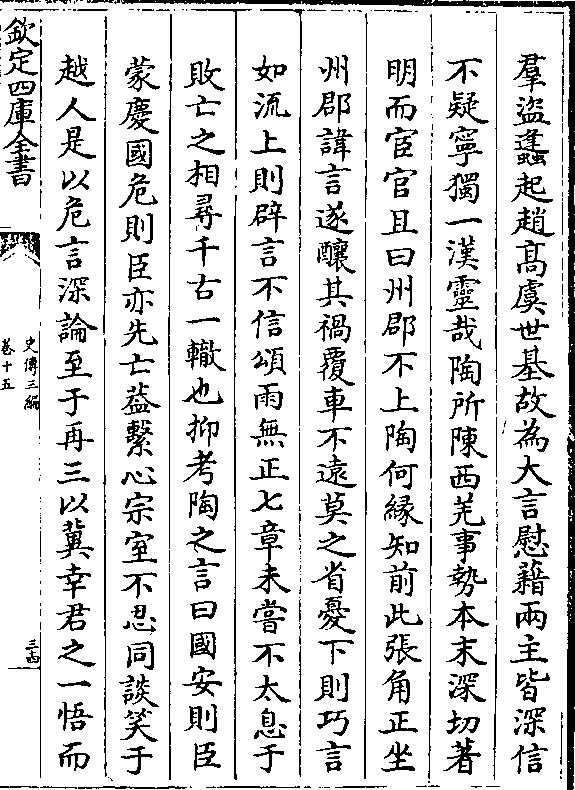 羣盜蠭起趙高虞世基故為大言慰藉兩主皆深信
不疑寧獨一漢靈哉陶所陳西羌事勢本末深切著
明而宦官且曰州郡不上陶何縁知前此張角正坐
州郡諱言遂釀其禍覆車不遠莫之省憂下則巧言
如流上則辟言不信頌雨無正七章未嘗不太息于
敗亡之相尋千古一轍也抑考陶之言曰國安則臣
蒙慶國危則臣亦先亡葢繫心宗室不忍同談笑于
越人是以危言深論至于再三以冀幸君之一悟而
欽定四庫全書
史傳三編
卷十五
三四